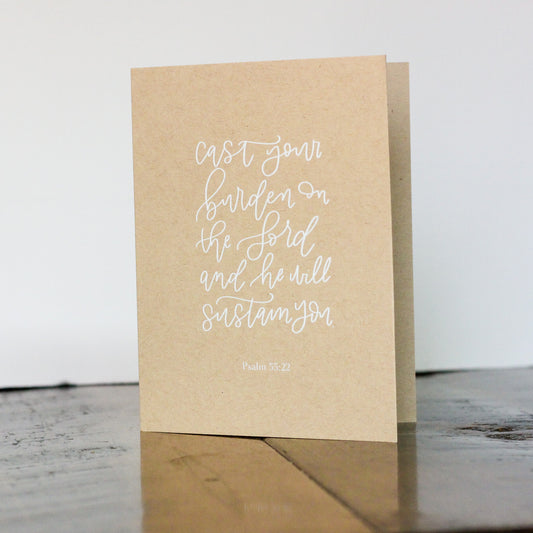 cast your
burden on
the Lord
and he will
sustain you
Psalm 55:22